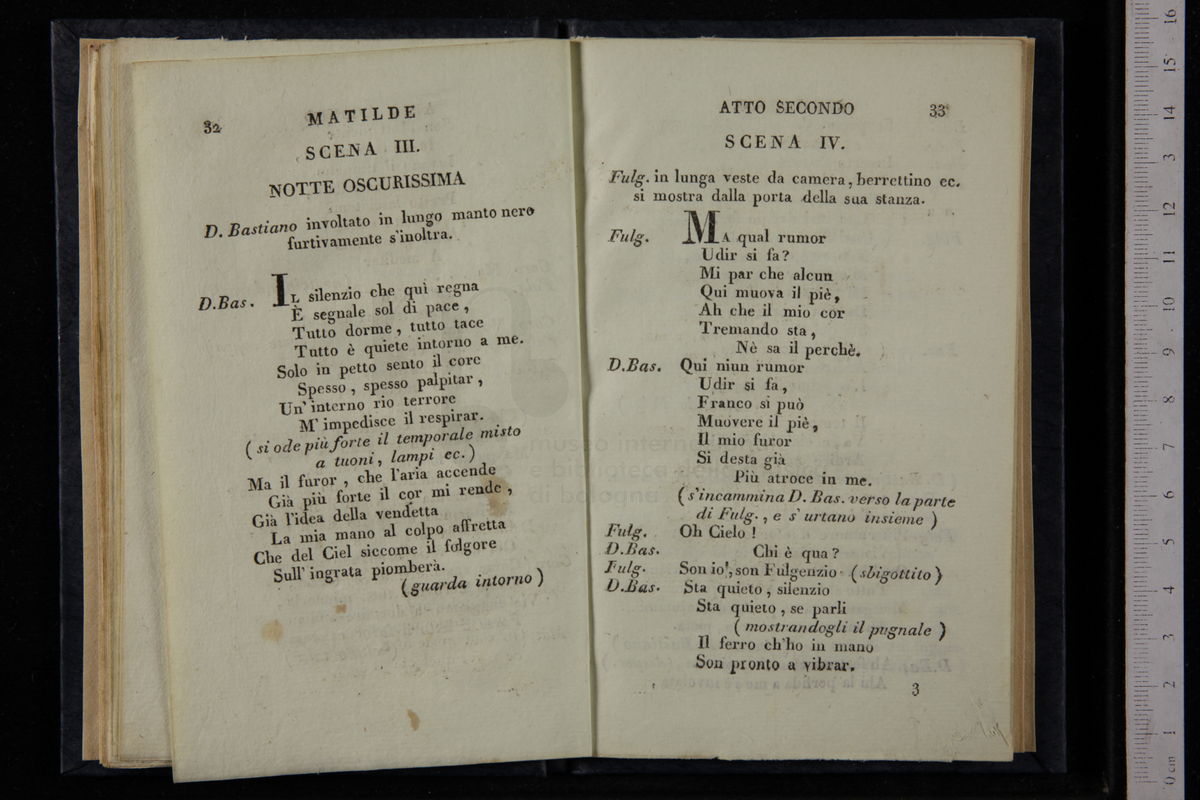 32
MATILDE
SCENA III.
NOTTE OSCURISSIMA
D. Bastiano involtato in lungo manto nero
furtivamente s'inoltra.
D.Bas. IL silenzio che quì regna
È segnale sol di pace,
Tutto dorme, tutto tace
Tutto è quiete intorno a me.
Solo in petto sento il core
Spesso, spesso palpitar,
Un' interno rio terrore
M' impedisce il respirar.
(si ode più forte il temporale misto
a tuoni, lampi ec.)
Ma il furor, che l'aria accende
Già più forte il cor mi rende,
Già l'idea della vendetta
La mia mano al colpo affretta
Che del Ciel siccome il folgore
Sull' ingrata piomberà.
(guarda intorno)
ATTO SECONDO 33
SCENA IV.
Fulg. in lunga veste da camera, berrettino ec.
si mostra dalla porta della sua stanza.
Fulg. MA qual rumor
Udir si fa?
Mi par che alcun
Qui muova il piè,
Ah che il mio cor
Tremando sta,
Nè sa il perchè.
D.Bas. Qui niun rumor
Udir si fa,
Franco si può
Muovere il piè,
Il mio furor
Si desta già
Più atroce in me.
(s'incammina D. Bas. verso la parte
di Fulg., e s' urtano insieme)
Fulg. Oh Cielo!
D.Bas. Chi è qua?
Fulg. Son io!, son Fulgenzio (sbigottito)
D.Bas. Sta quieto, silenzio
Sta quieto, se parli
(mostrandogli il pugnale)
Il ferro ch'ho in mano
Son pronto a vibrar.
3
museo intern
e biblioteca della
di bologna
0 cm 1 2 3 4 5 6 7 8 9 10 11 12 13 14 15 16